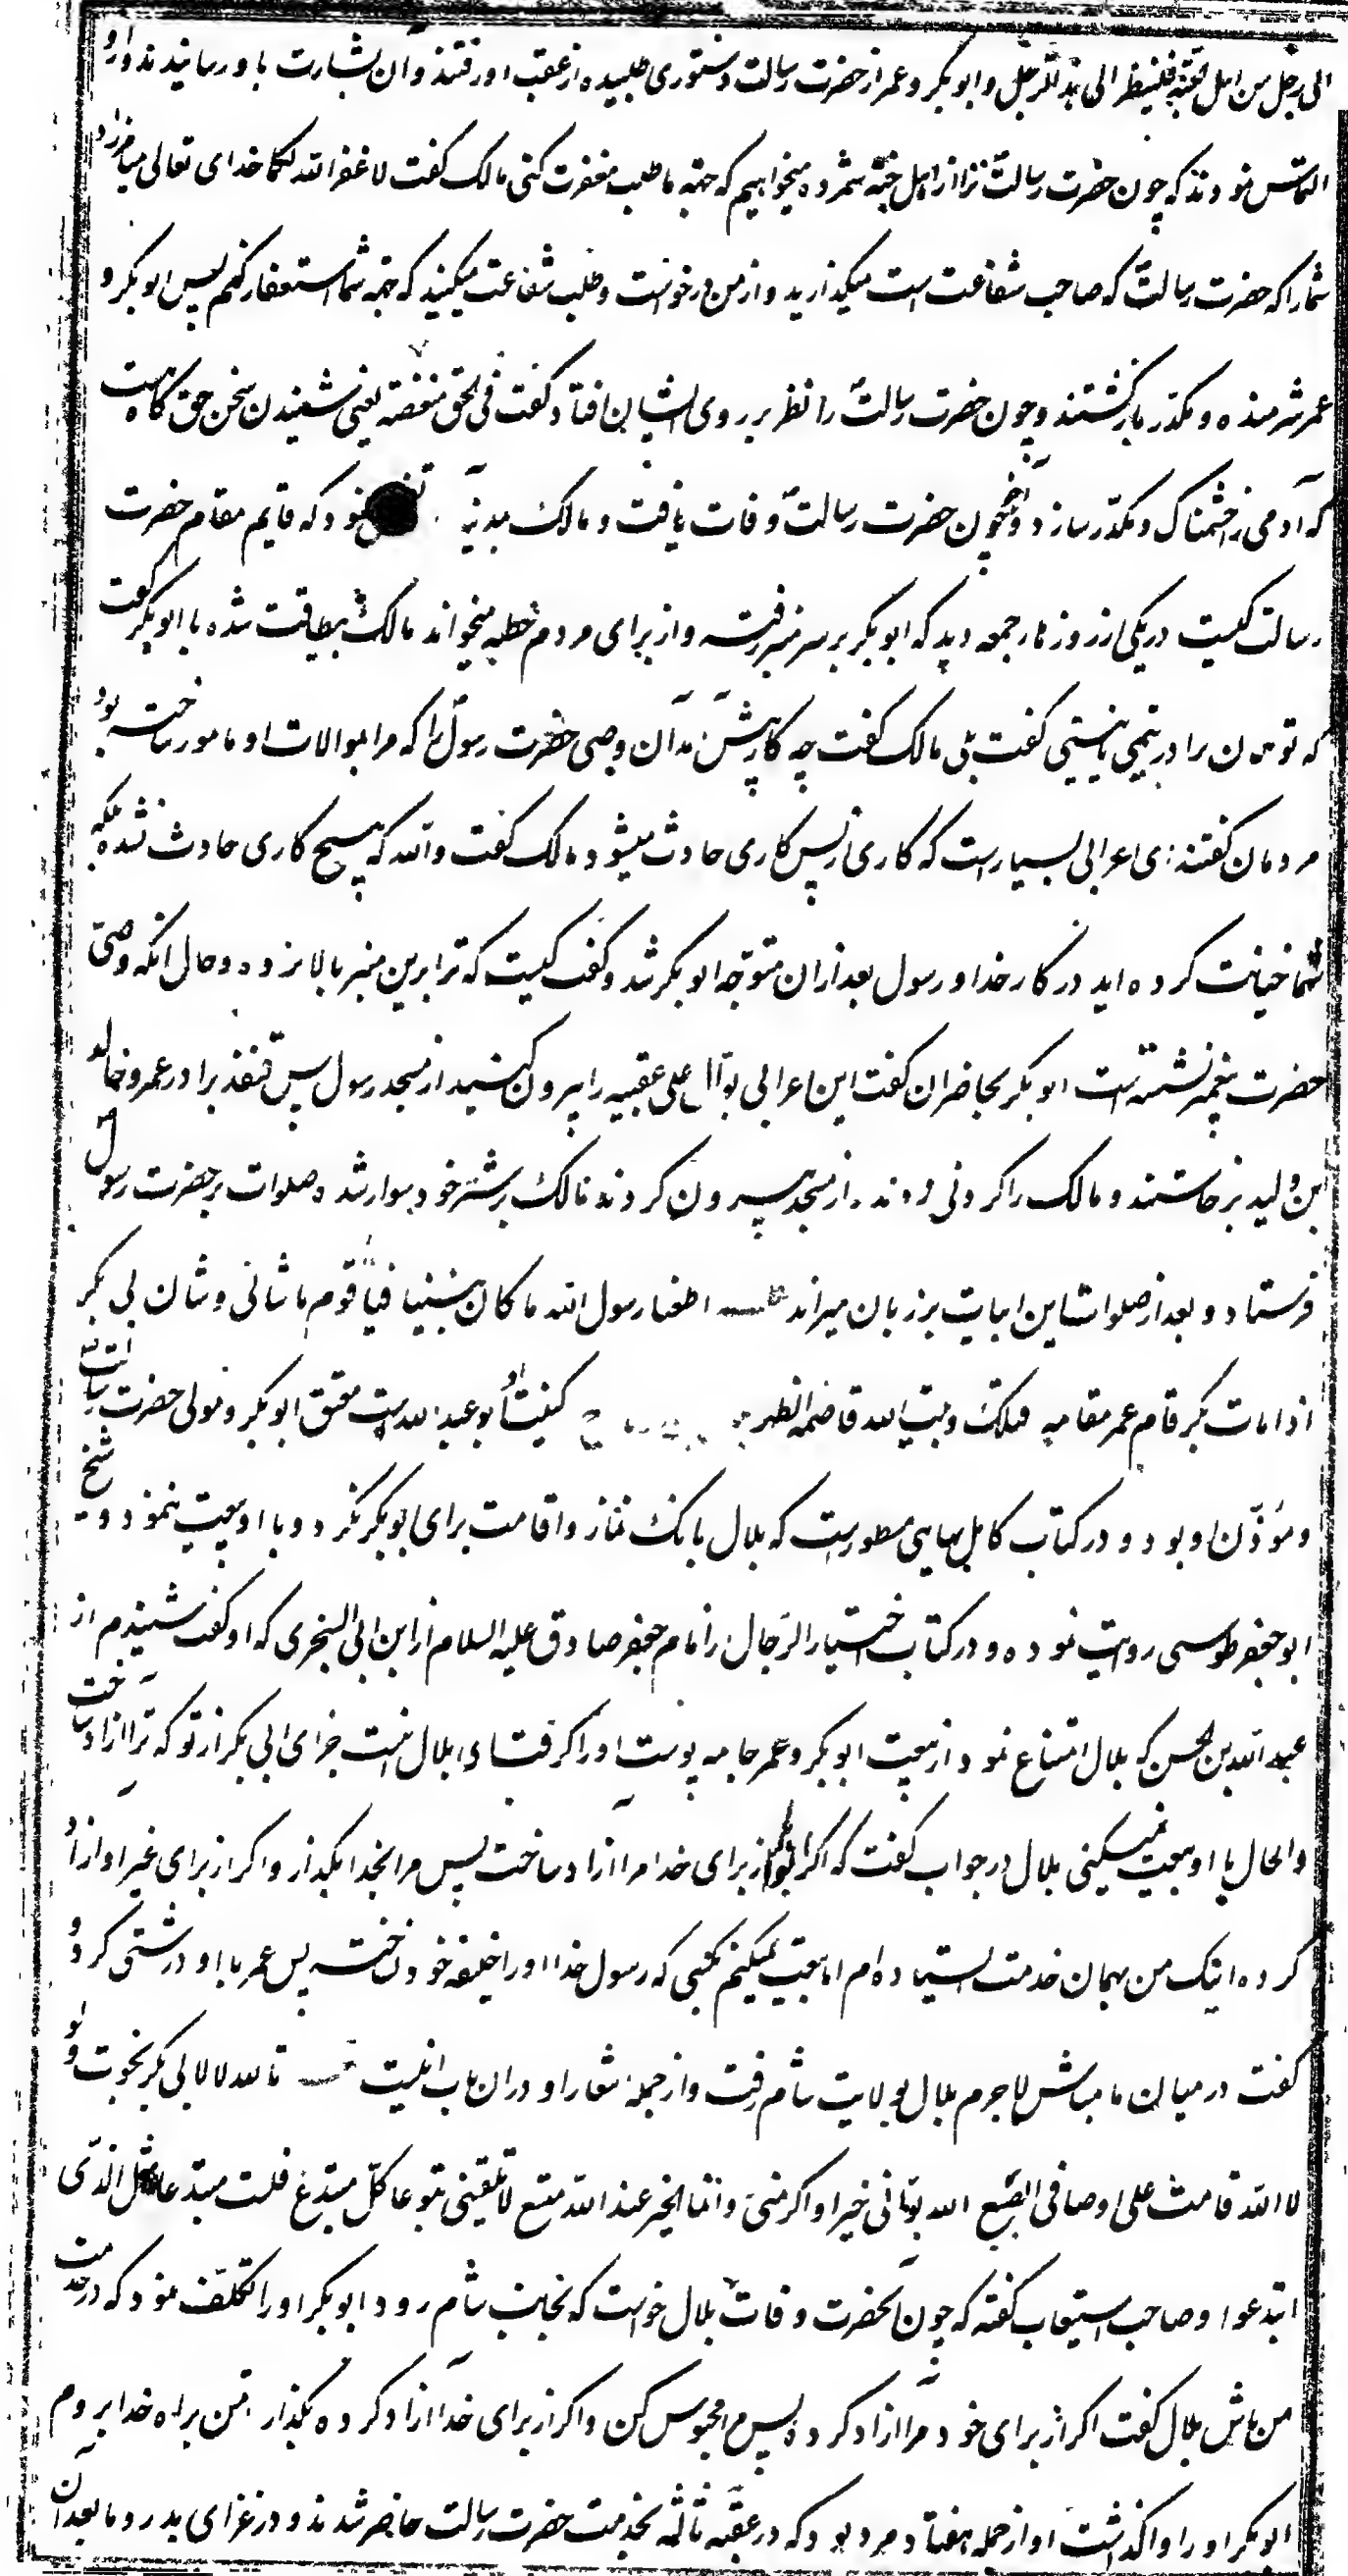 الی رجل من اهل الجنة فلینظر الی هذا الرجل و ابو بکر و عمر از حضرت رسالت دستوری طلبیده از عقب او رفتند و آن بشارت باو رسانیدند و ازو
التماس نمودند که چون حضرت رسالت ترا از اهل جنّه شمرده میخواهیم که جهة ما طلب مغفرت کنی مالک گفت لا غفر الله لکما خدای تعالی میامرزاد
شما را که حضرت رسالت که صاحب شفاعت است میگذارید و از من درخواست و طلب شفاعت میکنید که جهة شما استغفار کنم پس ابو بکر و
عمر شرمنده و مکدّر بازگشتند و چون حضرت رسالت را نظر بر روی ایشان افتاد گفت فی الحق مغضبة یعنی شنیدن سخن حق گاه هست
که آدمی را خشمناک و مکدّر سازد و چون حضرت رسالت وفات یافت و مالک بمدینه نمود که قایم مقام حضرت
رسالت کیست در یکی از روزها جمعه دید که ابو بکر بر سر منبر رفته و از برای مردم خطبه میخواند مالک بیطاقت شده با ابو بکر گفت
که تو همان برادر تیمی ما نیستی گفت بلی مالک گفت چه کار پیش آمد آن وصی حضرت رسول را که مرا بموالات او مامور ساخته بود
مردمان گفتند ای اعرابی بسیار است که کاری از پس کاری حادث میشود مالک گفت والله که هیچ کاری حادث نشده بلکه
شما خیانت کرده اید در کار خدا و رسول بعد از ان متوجّه ابو بکر شد و گفت کیست که ترا برین منبر بالا برده و حال انکه وصیّ
حضرت پیغمبر نشسته است ابو بکر بحاضران گفت این اعرابی بوّال علی عقبیه را بیرون کنید از مسجد رسول پس قنفذ برادر عمر و خالد
بن ولید برخاستند و مالک را گردنی زدند و از مسجد بیرون کردند مالک بر شتر خود سوار شده و صلوات بر حضرت رسول
فرستاد و بعد از صلوات این ابیات بر زبان میراند اطعنا رسول الله ما کان بیننا فیا قوم ما شانی و شان ابی بکر
اذا مات بکر قام عمر مقامه فتلک و بیت الله قاصمة الظهر کنیت او ابو عبدالله است معتق ابو بکر و مولی حضرت رسالت است
و مؤذّن او بود و در کتاب کامل بهایی مسطور است که بلال بانک نماز و اقامت برای ابو بکر نکرد و با او بیعت ننمود و شیخ
ابو جعفر طوسی روایت نموده و در کتاب اختیار الرجال از امام جعفر صادق علیه السلام از ابن ابی البختری که او گفت شنیدم از
عبدالله بن الحسن که بلال امتناع نمود از بیعت ابو بکر و عمر جامه پوست او را گرفت ای بلال اینست جزای ابی بکر از تو که ترا آزاد ساخت
و الحال با او بیعت نمیکنی بلال در جواب گفت که اگر ابو بکر از برای خدا مرا آزاد ساخت پس مرا بخدا بگذار و اگر از برای غیر او ازاد
کرده اینک من بهمان خدمت ایستاده ام اما بیعت نمیکنم بکسی که رسول خدا او را خلیفه خود نساخته پس عمر با او درشتی کرد و
گفت در میان ما مباش لاجرم بلال بولایت شام رفت و از جمله اشعار او در ان باب اینست تالله لا لابی بکر نجوت ولو
لا الله قامت علی اوصالی الضبع الله بوّانی خیرا و اکرمنی و انما الخیر عند الله متبع لا تلفینی تبوعا کل مبتدع فلست مبتدعا مثل الذی
ابتدعوا و صاحب استیعاب گفته که چون آنحضرت وفات بلال خواست که بجانب شام رود ابو بکر او را تکلّف نمود که در خدمت
من باش بلال گفت اگر از برای خود مرا آزاد کرده پس محبوس کن و اگر از برای خدا آزاد کرده بگذار تا من براه خدا بروم
ابو بکر او را واگذاشت او از جمله هفتاد مرد بود که در عقبه ثالثه بخدمت حضرت رسالت حاضر شدند و در غزای بدر و ما بعد آن